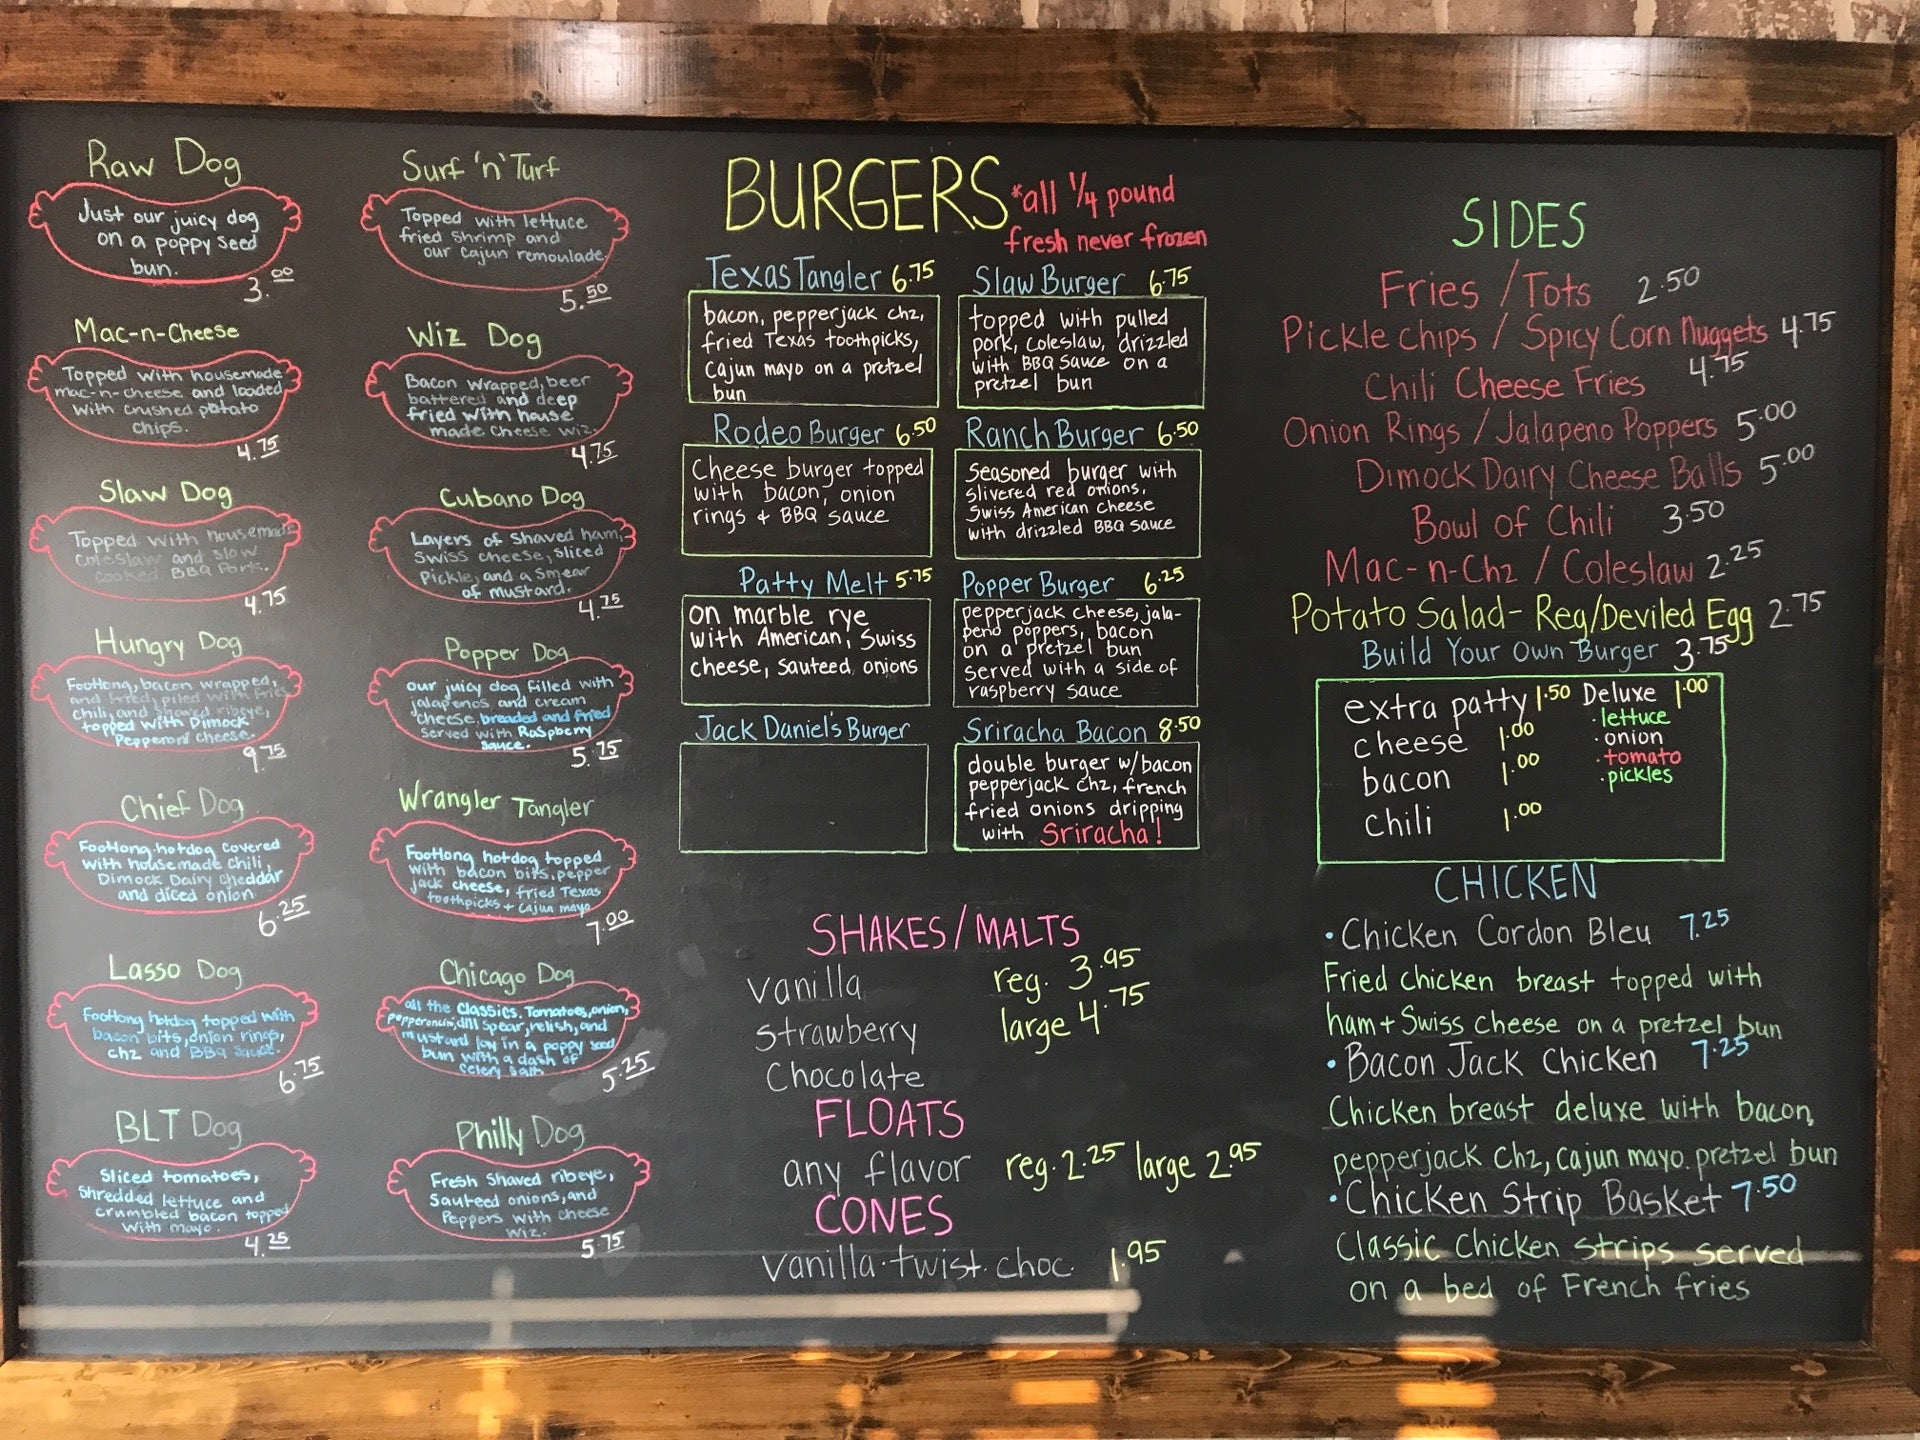 Raw Dog
Just our juicy dog
on a poppy seed
bun.
3.00
Mac-n-Cheese
Topped with housemade
mac-n-cheese and loaded
with crushed potato
chips.
4.75
Slaw Dog
Topped with housemade
Coleslaw and slow
cooked BBQ Pork.
4.75
Hungry Dog
Footlong, bacon wrapped,
and fried, piled with fries
chili, and shaved ribeye,
topped with Dimock
Pepperoni cheese.
9.75
Chief Dog
Footlong hotdog covered
with housemade chili,
Dimock Dairy Cheddar
and diced onion
6.25
Lasso Dog
Footlong hotdog topped with
bacon bits, onion rings,
chz and BBQ sauce.
6.75
BLT Dog
Sliced tomatoes,
Shredded lettuce and
crumbled bacon topped
with mayo.
4.25
Surf 'n' Turf
Topped with lettuce
fried shrimp and
our cajun remoulade.
5.50
Wiz Dog
Bacon wrapped, beer
battered and deep
fried with house
made cheese wiz.
4.75
Cubano Dog
Layers of Shaved ham,
Swiss cheese, sliced
Pickle, and a smear
of mustard.
4.75
Popper Dog
our juicy dog filled with
jalapenos and cream
cheese, breaded and fried
served with Raspberry
sauce.
5.75
Wrangler Tangler
Footlong hotdog topped
with bacon bits, pepper
jack cheese, fried Texas
toothpicks + cajun mayo
7.00
Chicago Dog
all the classics. Tomatoes, onion,
pepperoncini, dill spear, relish, and
mustard lay in a poppy seed
bun with a dash of
celery salt.
5.25
Philly Dog
Fresh Shaved ribeye,
Sauteed onions, and
Peppers with cheese
wiz.
5.75
BURGERS *all 1/4 pound
fresh never frozen
Texas Tangler 6.75
bacon, pepperjack chz,
fried Texas toothpicks,
Cajun mayo on a pretzel
bun
Slaw Burger 6.75
topped with pulled
pork, coleslaw, drizzled
with BBQ sauce on a
pretzel bun
Rodeo Burger 6.50
Cheese burger topped
with bacon, onion
rings + BBQ sauce
Ranch Burger 6.50
Seasoned burger with
slivered red onions,
Swiss American cheese
with drizzled BBQ sauce
Patty Melt 5.75
on marble rye
with American, Swiss
cheese, sauteed onions
Popper Burger 6.25
pepperjack cheese, jala-
peno poppers, bacon
on a pretzel bun
served with a side of
raspberry sauce
Jack Daniel's Burger
Sriracha Bacon 8.50
double burger w/bacon
pepperjack chz, french
fried onions dripping
with Sriracha!
SHAKES/MALTS
vanilla reg. 3.95
strawberry large 4.75
Chocolate
FLOATS
any flavor reg. 2.25 large 2.95
CONES
vanilla·twist·choc. 1.95
SIDES
Fries / Tots 2.50
Pickle chips / Spicy Corn Nuggets 4.75
Chili Cheese Fries 4.75
Onion Rings / Jalapeno Poppers 5.00
Dimock Dairy Cheese Balls 5.00
Bowl of Chili 3.50
Mac-n-Chz / Coleslaw 2.25
Potato Salad- Reg/Deviled Egg 2.75
Build Your Own Burger 3.75
extra patty 1.50
cheese 1.00
bacon 1.00
chili 1.00
Deluxe 1.00
·lettuce
·onion
·tomato
·pickles
CHICKEN
·Chicken Cordon Bleu 7.25
Fried chicken breast topped with
ham + Swiss cheese on a pretzel bun
·Bacon Jack Chicken 7.25
Chicken breast deluxe with bacon,
pepperjack chz, cajun mayo. pretzel bun
·Chicken Strip Basket 7.50
Classic Chicken strips served
on a bed of French fries